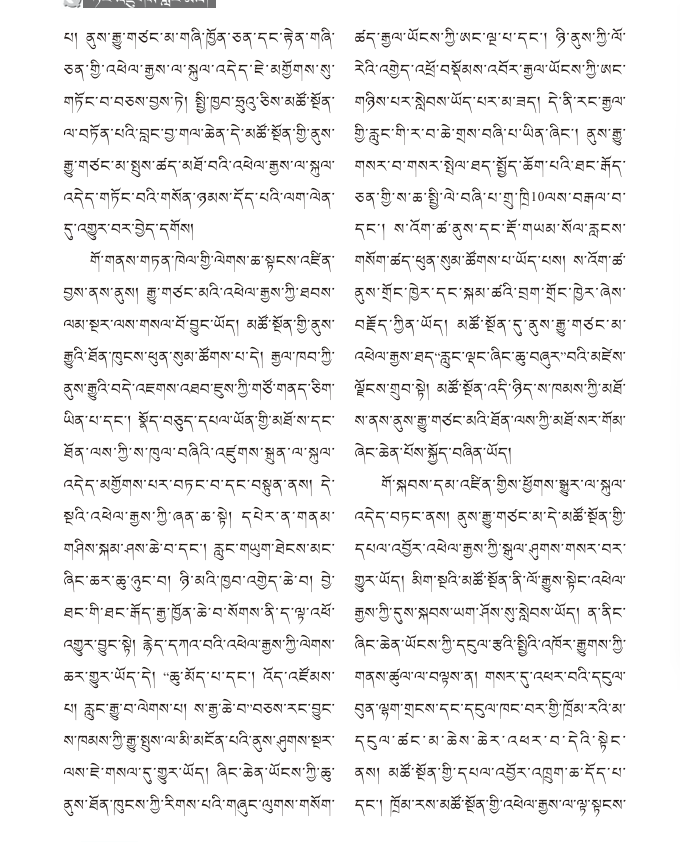 པ། ནུས་རྒྱུ་གཙང་མ་གཞི་ཁྱོན་ཅན་དང་རྟེན་གཞི་
ཅན་གྱི་འཕེལ་རྒྱས་ལ་སྐུལ་འདེད་ཇེ་མགྱོགས་སུ་
གཏོང་བ་བཅས་བྱས་ཏེ། སྤྱི་ཁྱབ་ཧྲུའུ་ཅིས་མཚོ་སྔོན་
ལ་བཏོན་པའི་བླང་བྱ་གལ་ཆེན་དེ་མཚོ་སྔོན་གྱི་ནུས་
རྒྱུ་གཙང་མ་སྤུས་ཚད་མཐོ་བའི་འཕེལ་རྒྱས་ལ་སྐུལ་
འདེད་གཏོང་བའི་གསོན་ཉམས་དོད་པའི་ལག་ལེན་
དུ་འགྱུར་བར་བྱེད་དགོས།
གོ་གནས་གཏན་ཁེལ་གྱི་ལེགས་ཆ་སྟངས་འཛིན་
བྱས་ནས་ནུས། རྒྱུ་གཙང་མའི་འཕེལ་རྒྱས་ཀྱི་ཐབས་
ལམ་སྔར་ལས་གསལ་པོ་བྱུང་ཡོད། མཚོ་སྔོན་གྱི་ནུས་
རྒྱུའི་ཐོན་ཁུངས་ཕུན་སུམ་ཚོགས་པ་དེ། རྒྱལ་ཁབ་ཀྱི་
ནུས་རྒྱུའི་བདེ་འཇགས་འཐབ་ཇུས་ཀྱི་གཙོ་གནད་ཅིག་
ཡིན་པ་དང་། སྣོད་བཅུད་དཔལ་ཡོན་གྱི་མཐོ་ས་དང་
ཐོན་ལས་ཀྱི་ས་ཁུལ་བཞིའི་འཛུགས་སྐྲུན་ལ་སྐུལ་
འདེད་མགྱོགས་པར་བཏང་བ་དང་བསྟུན་ནས། དེ་
སྔའི་འཕེལ་རྒྱས་ཀྱི་ཞན་ཆ་སྟེ། དཔེར་ན་གནམ་
གཤིས་སྐམ་ཤས་ཆེ་བ་དང་། རླུང་གཡུག་ཐེངས་མང་
ཞིང་ཆར་ཆུ་ཉུང་བ། ཉི་མའི་ཁྱབ་འགྱེད་ཆེ་བ། བྱེ་
ཐང་གི་ཐང་རྒོད་རྒྱ་ཁྱོན་ཆེ་བ་སོགས་ནི་ད་ལྟ་འཕོ་
འགྱུར་བྱུང་སྟེ། རྙེད་དཀའ་བའི་འཕེལ་རྒྱས་ཀྱི་ལེགས་
ཆར་གྱུར་ཡོད་དེ། “ཆུ་མོད་པ་དང་། འོད་འཛོམས་
པ། རླུང་རྒྱུ་བ་ལེགས་པ། ས་རྒྱ་ཆེ་བ”བཅས་རང་བྱུང་
ས་ཁམས་ཀྱི་རྒྱུ་སྤུས་ལ་མི་མངོན་པའི་ནུས་ཤུགས་སྔར་
ལས་ཇེ་གསལ་དུ་གྱུར་ཡོད། ཞིང་ཆེན་ཡོངས་ཀྱི་ཆུ་
ནུས་ཐོན་ཁུངས་ཀྱི་རིགས་པའི་གཞུང་ལུགས་གསོག་
ཚད་རྒྱལ་ཡོངས་ཀྱི་ཨང་ལྔ་པ་དང་། ཉི་ནུས་ཀྱི་ལོ་
རེའི་འགྱེད་འཕྲོ་བསྡོམས་འབོར་རྒྱལ་ཡོངས་ཀྱི་ཨང་
གཉིས་པར་སླེབས་ཡོད་པར་མ་ཟད། དེ་ནི་རང་རྒྱལ་
གྱི་རླུང་གི་ར་བ་ཆེ་གྲས་བཞི་པ་ཡིན་ཞིང་། ནུས་རྒྱུ་
གསར་བ་གསར་སྤེལ་ཐད་སྤྱོད་ཆོག་པའི་ཐང་རྒོད་
ཅན་གྱི་ས་ཆ་སྤྱི་ལེ་བཞི་པ་གྲུ་ཁྲི10ལས་བརྒལ་བ་
དང་། ས་འོག་ཚ་ནུས་དང་རྡོ་གཡམ་སོལ་རླངས་
གསོག་ཚད་ཕུན་སུམ་ཚོགས་པ་ཡོད་པས། ས་འོག་ཚ་
ནུས་གྲོང་ཁྱེར་དང་སྐམ་ཚའི་བྲག་གྲོང་ཁྱེར་ཞེས་
བརྗོད་ཀྱིན་ཡོད། མཚོ་སྔོན་དུ་ནུས་རྒྱུ་གཙང་མ་
འཕེལ་རྒྱས་ཐད“རླུང་ལྡང་ཞིང་ཆུ་བཞུར”བའི་མཛེས་
ལྗོངས་གྲུབ་སྟེ། མཚོ་སྔོན་འདི་ཉིད་ས་ཁམས་ཀྱི་མཐོ་
ས་ནས་ནུས་རྒྱུ་གཙང་མའི་ཐོན་ལས་ཀྱི་མཐོ་སར་གོམ་
ཞེང་ཆེན་པོས་སྐྱོད་བཞིན་ཡོད།
གོ་སྐབས་དམ་འཛིན་གྱིས་ཕྱོགས་སྒྱུར་ལ་སྐུལ་
འདེད་བཏང་ནས། ནུས་རྒྱུ་གཙང་མ་དེ་མཚོ་སྔོན་གྱི་
དཔལ་འབྱོར་འཕེལ་རྒྱས་ཀྱི་སྒུལ་ཤུགས་གསར་བར་
གྱུར་ཡོད། མིག་སྔའི་མཚོ་སྔོན་ནི་ལོ་རྒྱུས་སྟེང་འཕེལ་
རྒྱས་ཀྱི་དུས་སྐབས་ཡག་ཤོས་སུ་སླེབས་ཡོད། ན་ནིང་
ཞིང་ཆེན་ཡོངས་ཀྱི་དངུལ་རྩའི་སྤྱིའི་འཁོར་རྒྱུགས་ཀྱི་
གནས་ཚུལ་ལ་བལྟས་ན། གསར་དུ་འཕར་བའི་དངུལ་
བུན་ལྷག་གྲངས་དང་དངུལ་ཁང་བར་གྱི་ཁྲོམ་རའི་མ་
དངུལ་ཚང་མ་ཆེས་ཆེར་འཕར་བ་དེའི་སྟེང་
ནས། མཚོ་སྔོན་གྱི་དཔལ་འབྱོར་འཁྲུག་ཆ་དོད་པ་
དང་། ཁྲོམ་རས་མཚོ་སྔོན་གྱི་འཕེལ་རྒྱས་ལ་ལྟ་སྟངས་